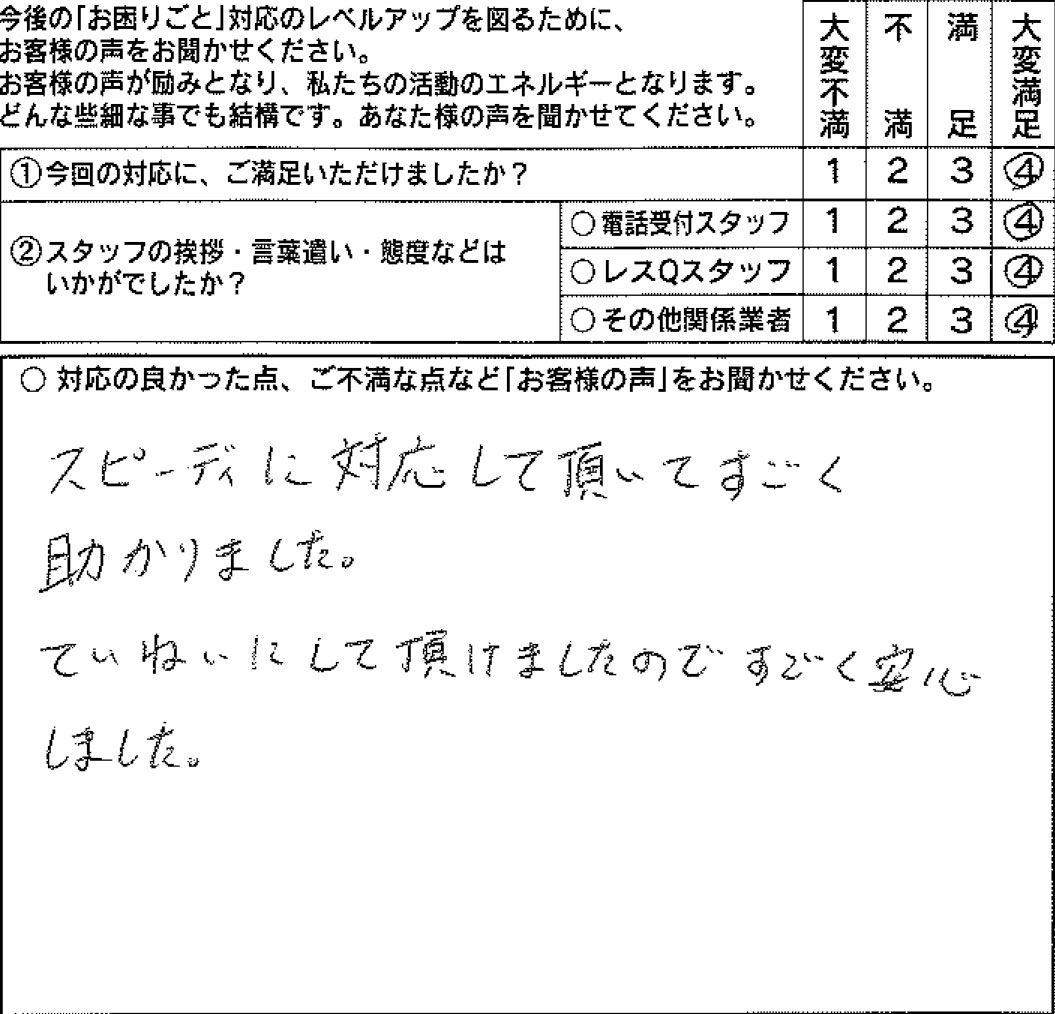 今後の「お困りごと」対応のレベルアップを図るために、
お客様の声をお聞かせください。
お客様の声が励みとなり、私たちの活動のエネルギーとなります。
どんな些細な事でも結構です。あなた様の声を聞かせてください。
大変不満 不満 満足 大変満足
①今回の対応に、ご満足いただけましたか? 1 2 3 ④
②スタッフの挨拶・言葉遣い・態度などは
いかがでしたか?
○電話受付スタッフ 1 2 3 ④
○レスQスタッフ 1 2 3 ④
○その他関係業者 1 2 3 ④
○ 対応の良かった点、ご不満な点など「お客様の声」をお聞かせください。
スピーディに対応して頂いてすごく
助かりました。
ていねいにして頂けましたのですごく安心
しました。